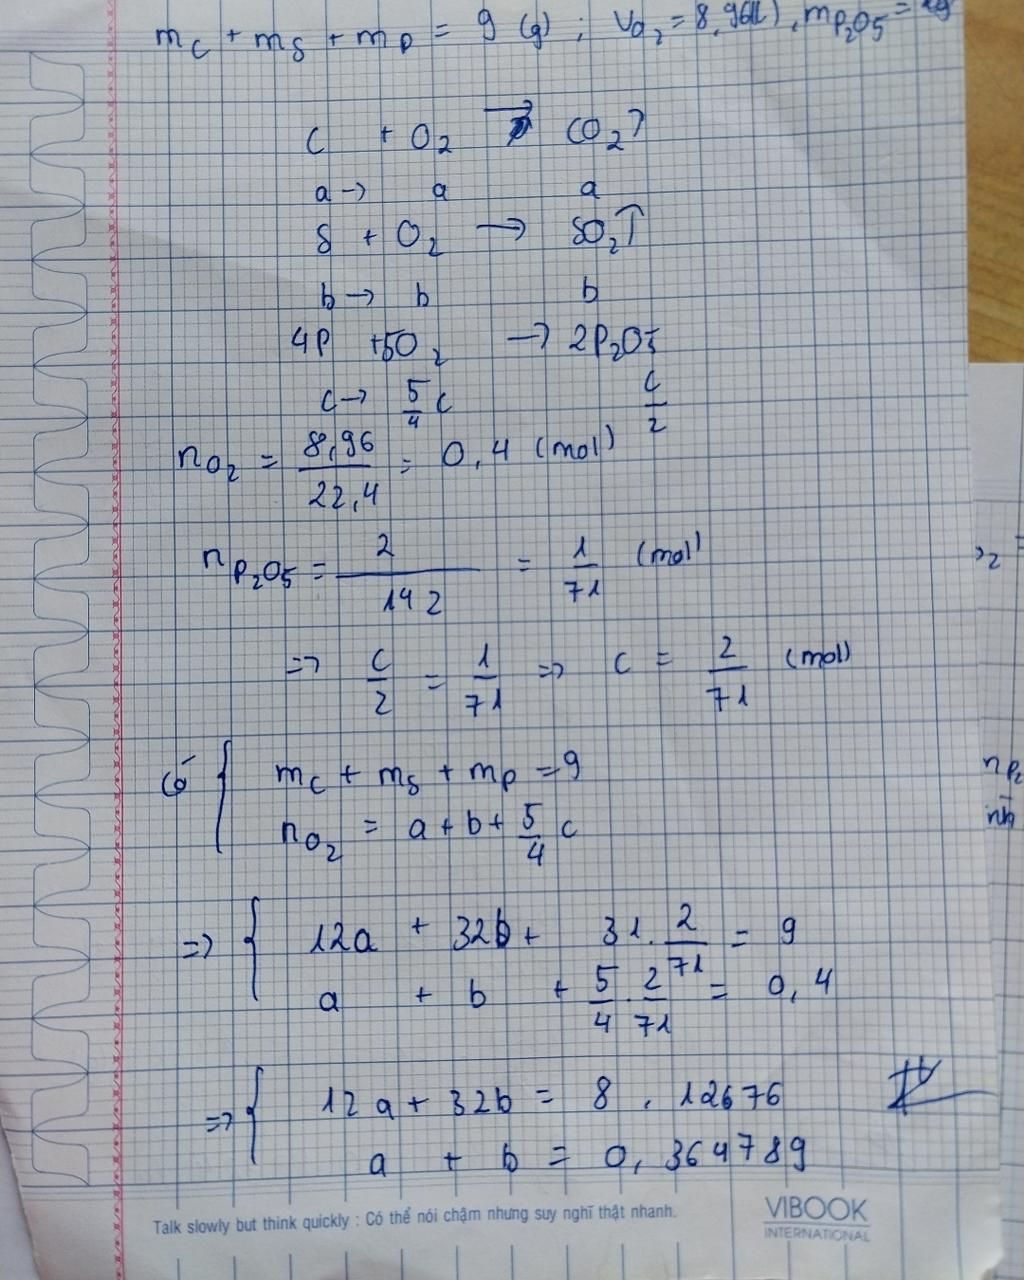 m_C + m_S + m_P = 9 (g) ; V_O₂ = 8,96(l), m_P₂O₅ =
C + O₂ → CO₂↑
a → a a
S + O₂ → SO₂↑
b → b b
4P + 5O₂ → 2P₂O₅
c → 5/4 c c/2
n_O₂ = 8,96/22,4 = 0,4 (mol)
n_P₂O₅ = 2/142 = 1/71 (mol)
=> c/2 = 1/71 => c = 2/71 (mol)
Có { m_C + m_S + m_P = 9
n_O₂ = a + b + 5/4 c
=> { 12a + 32b + 31 . 2/71 = 9
a + b + 5/4 . 2/71 = 0,4
=> { 12a + 32b = 8,12676
a + b = 0,364789
Talk slowly but think quickly : Có thể nói chậm nhưng suy nghĩ thật nhanh.
VIBOOK
INTERNATIONAL